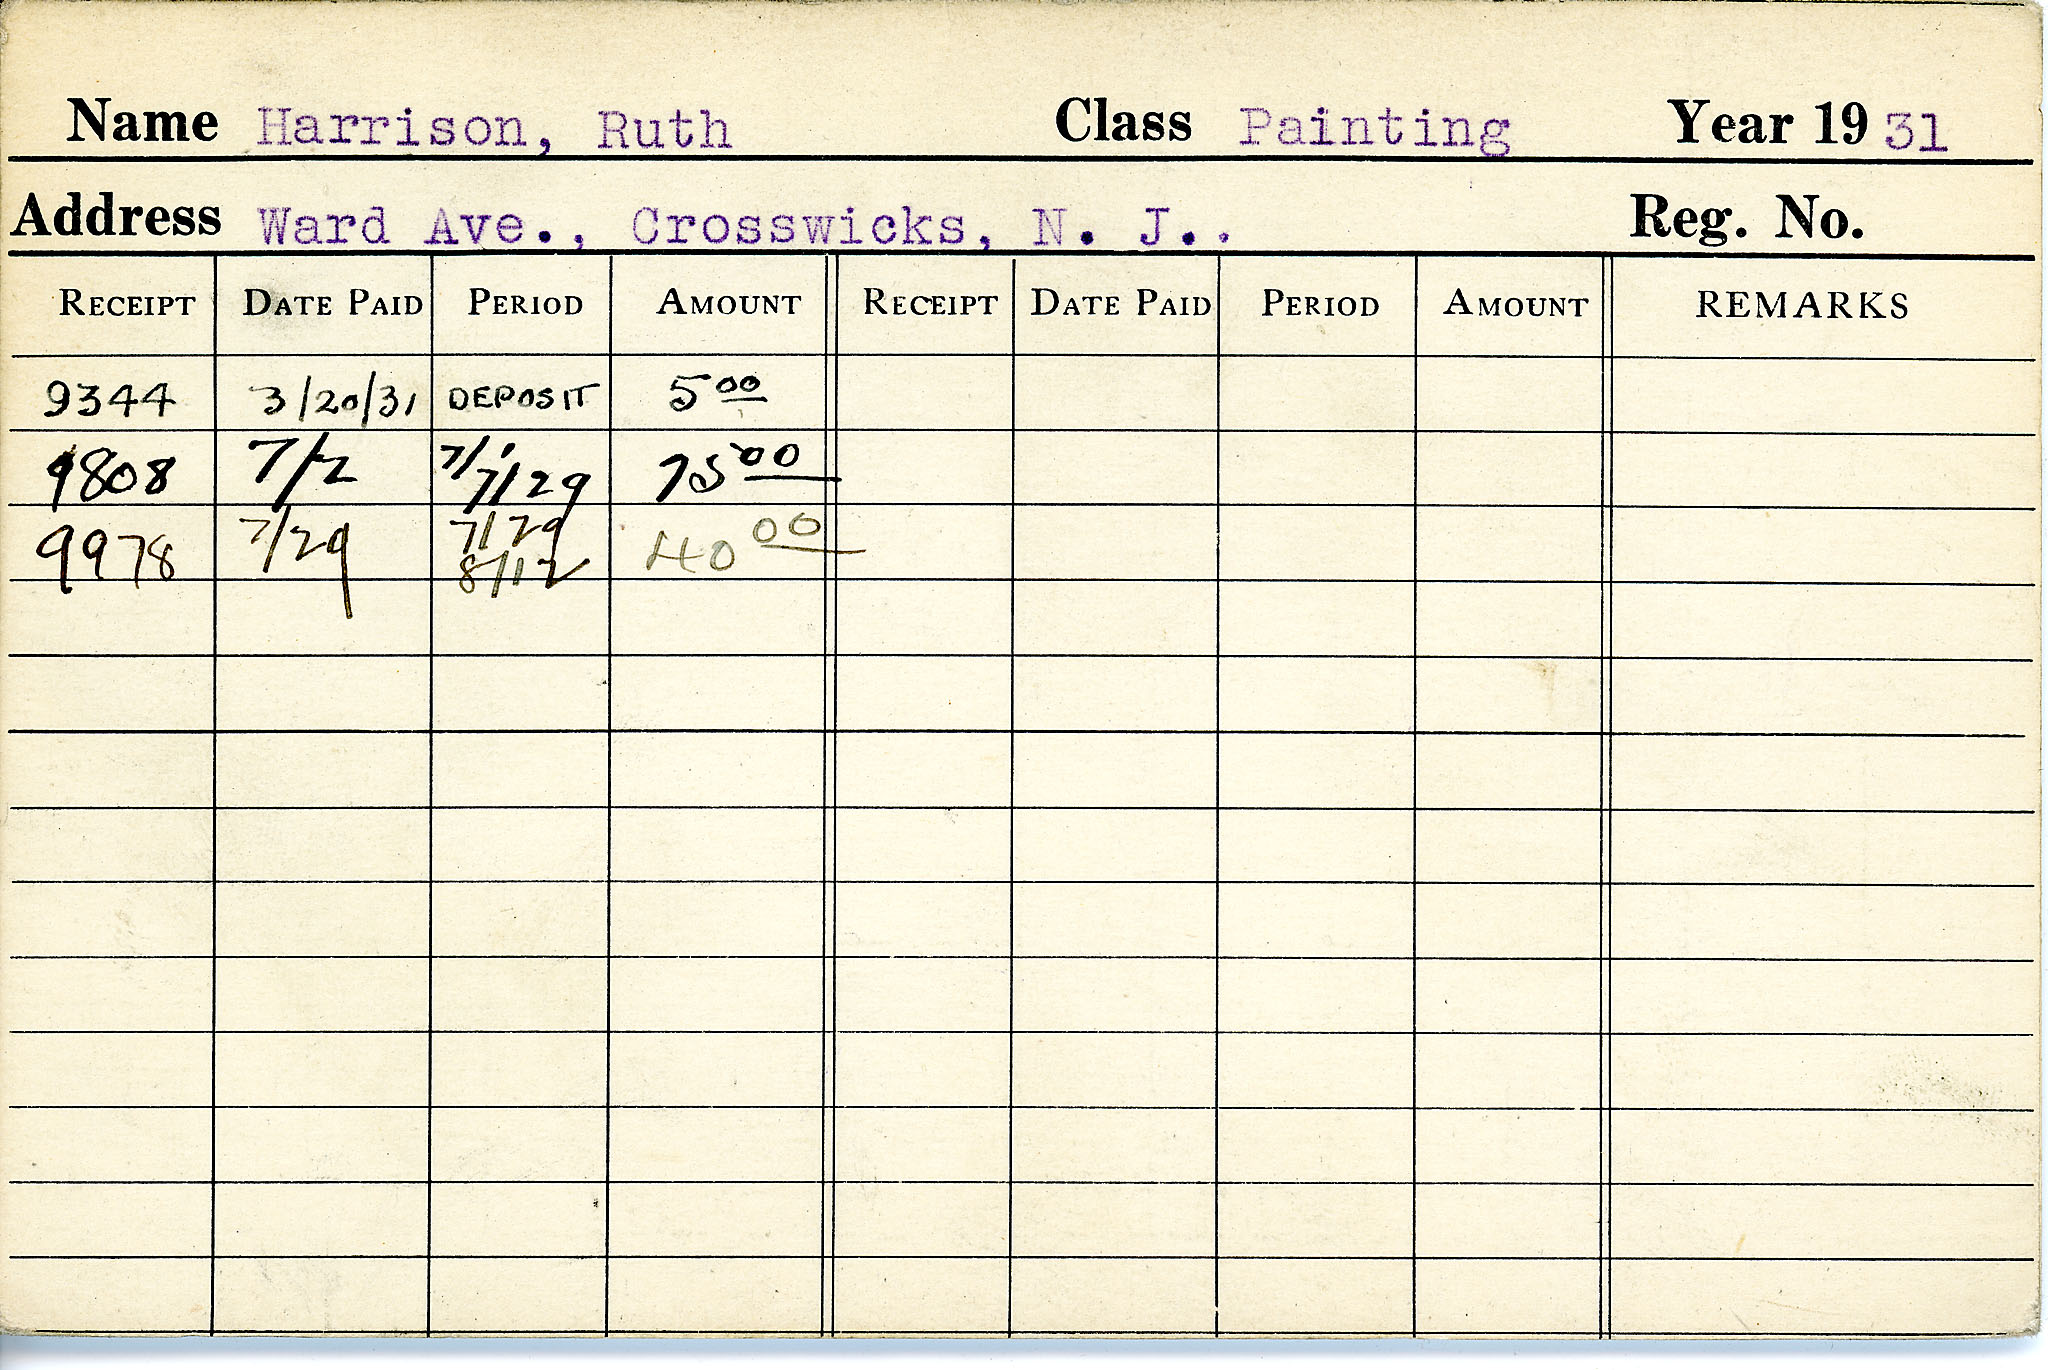 Name Harrison, Ruth Class Painting Year 19 31
Address Ward Ave., Crosswicks, N. J.. Reg. No.
RECEIPT DATE PAID PERIOD AMOUNT RECEIPT DATE PAID PERIOD AMOUNT REMARKS
9344 3/20/31 DEPOSIT 5 00
9808 7/2 7/1 7/29 75 00
9978 7/29 7/29 40 00
8/12